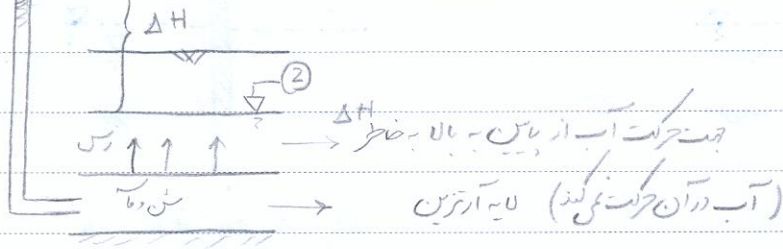 ΔH
②
رس → جهت حرکت آب از پایین به بالا به خاطر ΔH
→ لایه آرتزین (آب در آن حرکت نمی‌کند)